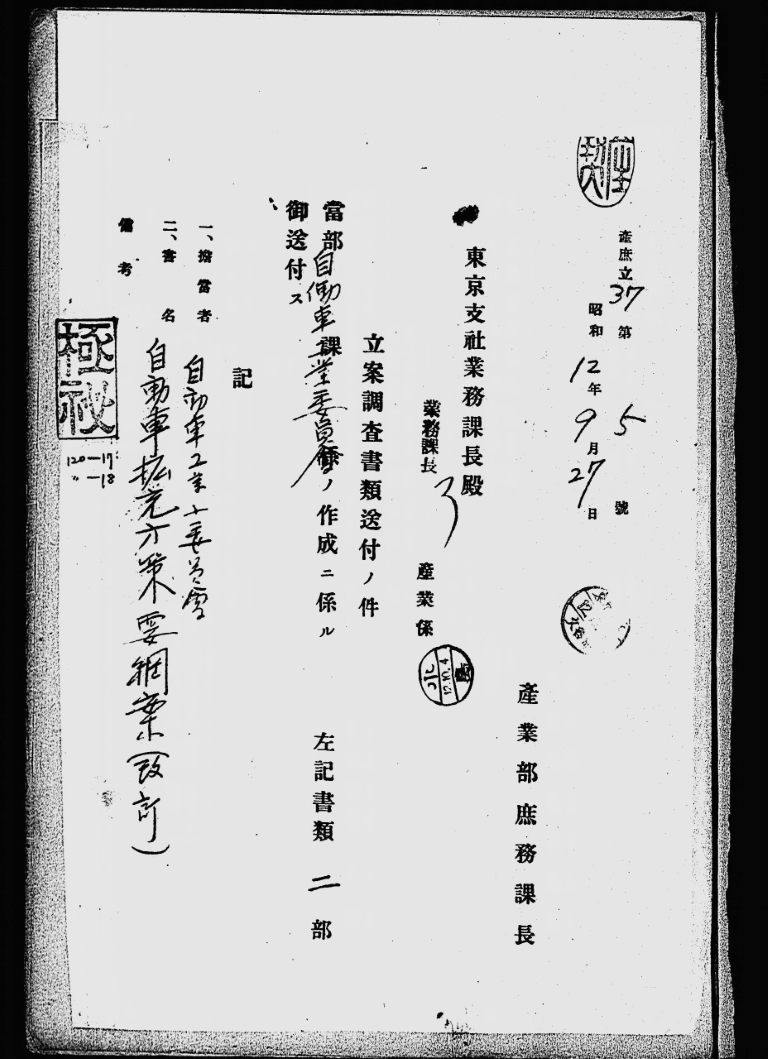 產庶立37第5號
昭和12年9月27日
產業部庶務課長
東京支社業務課長殿
業務課長
產業係
12.10.4
立案調查書類送付ノ件
當部自動車工業小委員會課係ノ作成ニ係ル左記書類二部
御送付ス
記
一、擔當者 自動車工業小委員會
二、書名 自動車拡充方策要綱案(改訂)
備考
極祕
120-17
〃-18